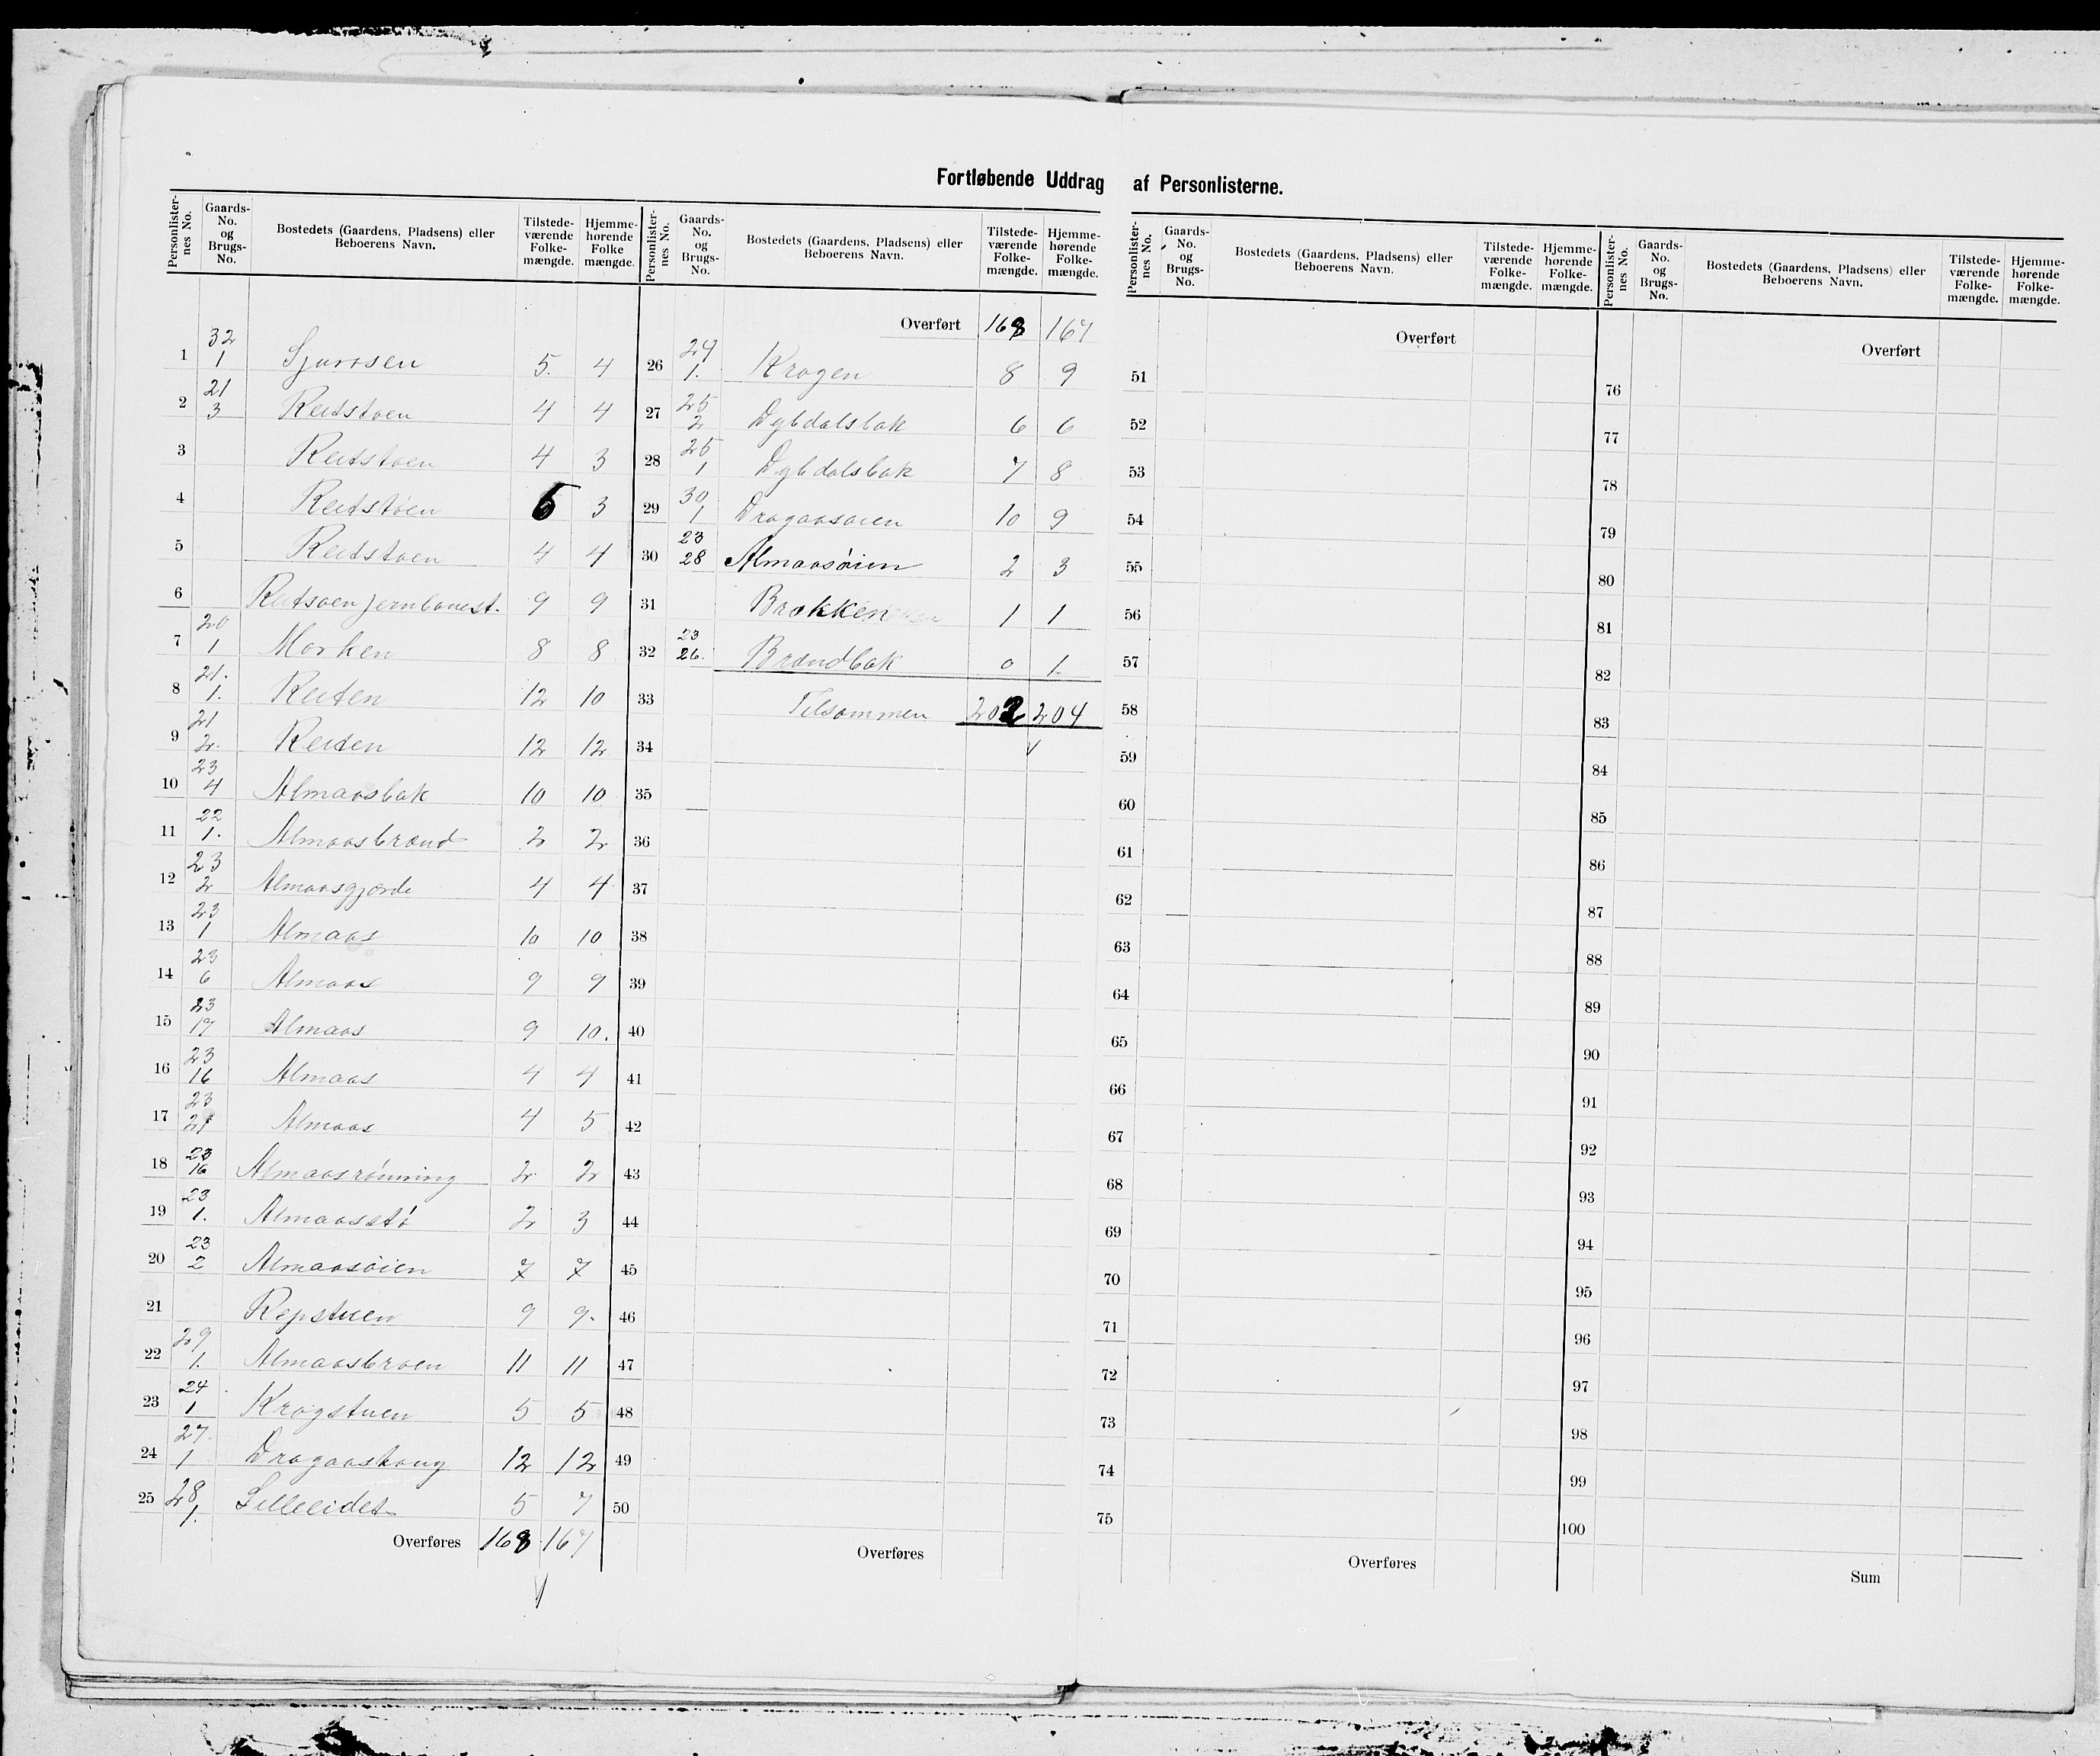 Fortløbende Uddrag af Personlisterne.
Personlisternes No. Gaards-No. og Brugs-No. Bostedets (Gaardens, Pladsens) eller Beboerens Navn. Tilstedeværende Folkemængde. Hjemmehørende Folke mængde.
1 32/1 5. 4
2 21/3 Reitstoen 4 4
3 Reitstoen 4 3
4 Reitstøen 5 3
5 Reitstoen 4 4
6 Reitsoen jernbanest. 9 9
7 20/1 Morken 8 8
8 21./1. Reiten 12 10
9 21/2. Reiten 12 12
10 23/4 Almaasbak 10 10
11 22/1. Almaasbrænd 2 2
12 23/2 Almaasgjærde 4 4
13 23/1 Almaas 10 10
14 23/6 Almaas 9 9
15 23/17 Almaas 9 10.
16 23/16 Almaas 4 4
17 23/21 Almaas 4 5
18 23/16 Almaasrønning 2 2
19 23/1. Almaasstø 2 3
20 23/2 Almaasøien 7 7
21 Repstuen 9 9.
22 29/1. Almaasbroen 11 11
23 24/1 Krogstuen 5 5
24 27./1 Dragaashaug 12 12
25 28/1. Lilleeidet 5 7
Overføres 168 167
Personlisternes No. Gaards-No. og Brugs-No. Bostedets (Gaardens, Pladsens) eller Beboerens Navn. Tilstedeværende Folkemængde. Hjemmehørende Folkemængde.
Overført 168 167
26 24/1. Krogen 8 9
27 25/2 Dybdalsbak 6 6
28 25/1 Dybdalsbak 7 8
29 30/1 Dragaasøien 10 9
30 23/28 Almaasøien 2 3
31 Brækken 1 1
32 23/26. Brændbak 0 1.
33 Tilsammen 202 204
34
35
36
37
38
39
40
41
42
43
44
45
46
47
48
49
50
Overføres
Personlisternes No. Gaards-No. og Brugs-No. Bostedets (Gaardens, Pladsens) eller Beboerens Navn. Tilstedeværende Folkemængde. Hjemmehørende Folkemængde.
Overført
51
52
53
54
55
56
57
58
59
60
61
62
63
64
65
66
67
68
69
70
71
72
73
74
75
Overføres
Personlisternes No. Gaards-No. og Brugs-No. Bostedets (Gaardens, Pladsens) eller Beboerens Navn. Tilstedeværende Folkemængde. Hjemmehørende Folkemængde.
Overført
76
77
78
79
80
81
82
83
84
85
86
87
88
89
90
91
92
93
94
95
96
97
98
99
100
Sum